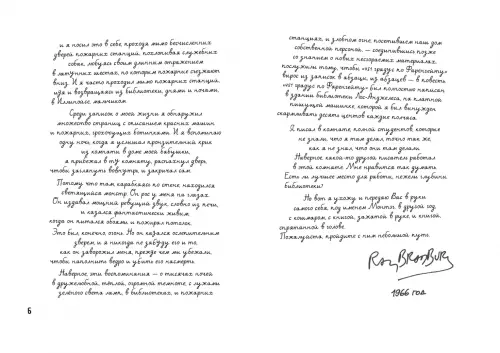 и я носил это в себе, проходя мимо бесчисленных
дверей пожарных станций, похлопывая служебных
собак, любуясь своим длинным отражением
в латунных шестах, по которым пожарные съезжают
вниз. И я часто проходил мимо пожарных станций,
идя и возвращаясь из библиотеки, днями и ночами,
в Иллинойсе, мальчиком.
Среди записок о моей жизни я обнаружил
множество страниц с описанием красных машин
и пожарных, грохочущих ботинками. И я вспоминаю
одну ночь, когда я услышал пронзительный крик
из комнаты в доме моей бабушки,
я прибежал в ту комнату, распахнул дверь,
чтобы заглянуть вовнутрь, и закричал сам.
Потому что там, карабкаясь по стене, находился
светящийся монстр. Он рос у меня на глазах.
Он издавал мощный ревущий звук, словно из печи,
и казался фантастически живым,
когда он питался обоями и пожирал потолок.
Это был, конечно, огонь. Но он казался ослепительным
зверем, и я никогда не забуду его и то,
как он заворожил меня, прежде чем мы убежали,
чтобы наполнить ведро и убить его насмерть.
Наверное, эти воспоминания — о тысячах ночей
в дружелюбной, тёплой, огромной темноте, с лужами
зелёного света ламп, в библиотеках, и пожарных
6
станциях, и злобном огне, посетившем наш дом
собственной персоной, — соединившись позже
со знанием о новых несгораемых материалах,
послужили тому, чтобы «451 градус по Фаренгейту»
вырос из записок в абзацы, из абзацев — в повесть.
«451 градус по Фаренгейту» был полностью написан
в здании библиотеки Лос-Анджелеса, на платной
пишущей машинке, которой я был вынужден
скармливать десять центов каждые полчаса.
Я писал в комнате, полной студентов, которые
не знали, что я там делал, точно так же,
как я не знал, что они там делали.
Наверное, какой-то другой писатель работал
в этой комнате. Мне нравится так думать.
Есть ли лучшее место для работы, нежели глубины
библиотеки?
Но вот я ухожу, и передаю Вас в руки
самого себя, под именем Монтэг, в другой год,
с кошмаром, с книгой, зажатой в руке, и книгой,
спрятанной в голове.
Пожалуйста, пройдите с ним небольшой путь.
Ray Bradbury
1966 год